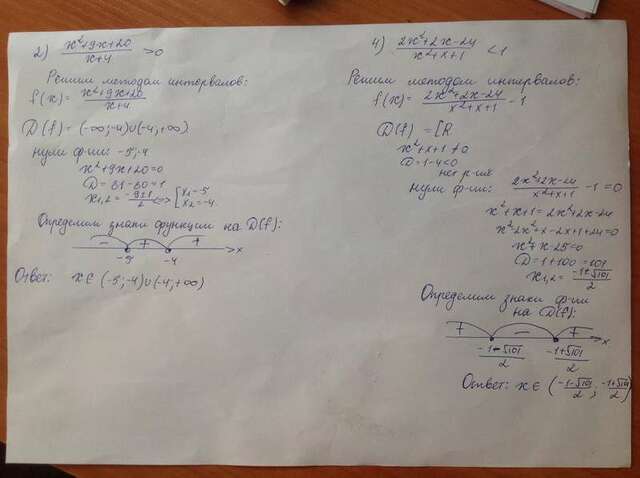 2) (x²+9x+20)/(x+4) >0
Решим методом интервалов:
f(x)= (x²+9x+20)/(x+4)
D(f)=(-∞;-4)∪(-4;+∞)
нули ф-ии: -5;-4
x²+9x+20=0
D=81-80=1
x₁,₂= (-9±1)/2 <=> [x₁=-5 x₂=-4
Определим знаки функции на D(f):
- + + x
-5 -4
Ответ: x∈(-5;-4)∪(-4;+∞)
4) (2x²+2x-24)/(x²+x+1) <1
Решим методом интервалов:
f(x)= (2x²+2x-24)/(x²+x+1) -1
D(f)=ℝ
x²+x+1≠0
D=1-4<0
нет р-ий
нули ф-ии: (2x²+2x-24)/(x²+x+1) -1=0
x²+x+1=2x²+2x-24
x²-2x²+x-2x+1+24=0
x²+x-25=0
D=1+100=101
x₁,₂= (-1±√101)/2
Определим знаки ф-ии
на D(f):
+ - + x
(-1-√101)/2 (-1+√101)/2
Ответ: x∈((-1-√101)/2; (-1+√101)/2)